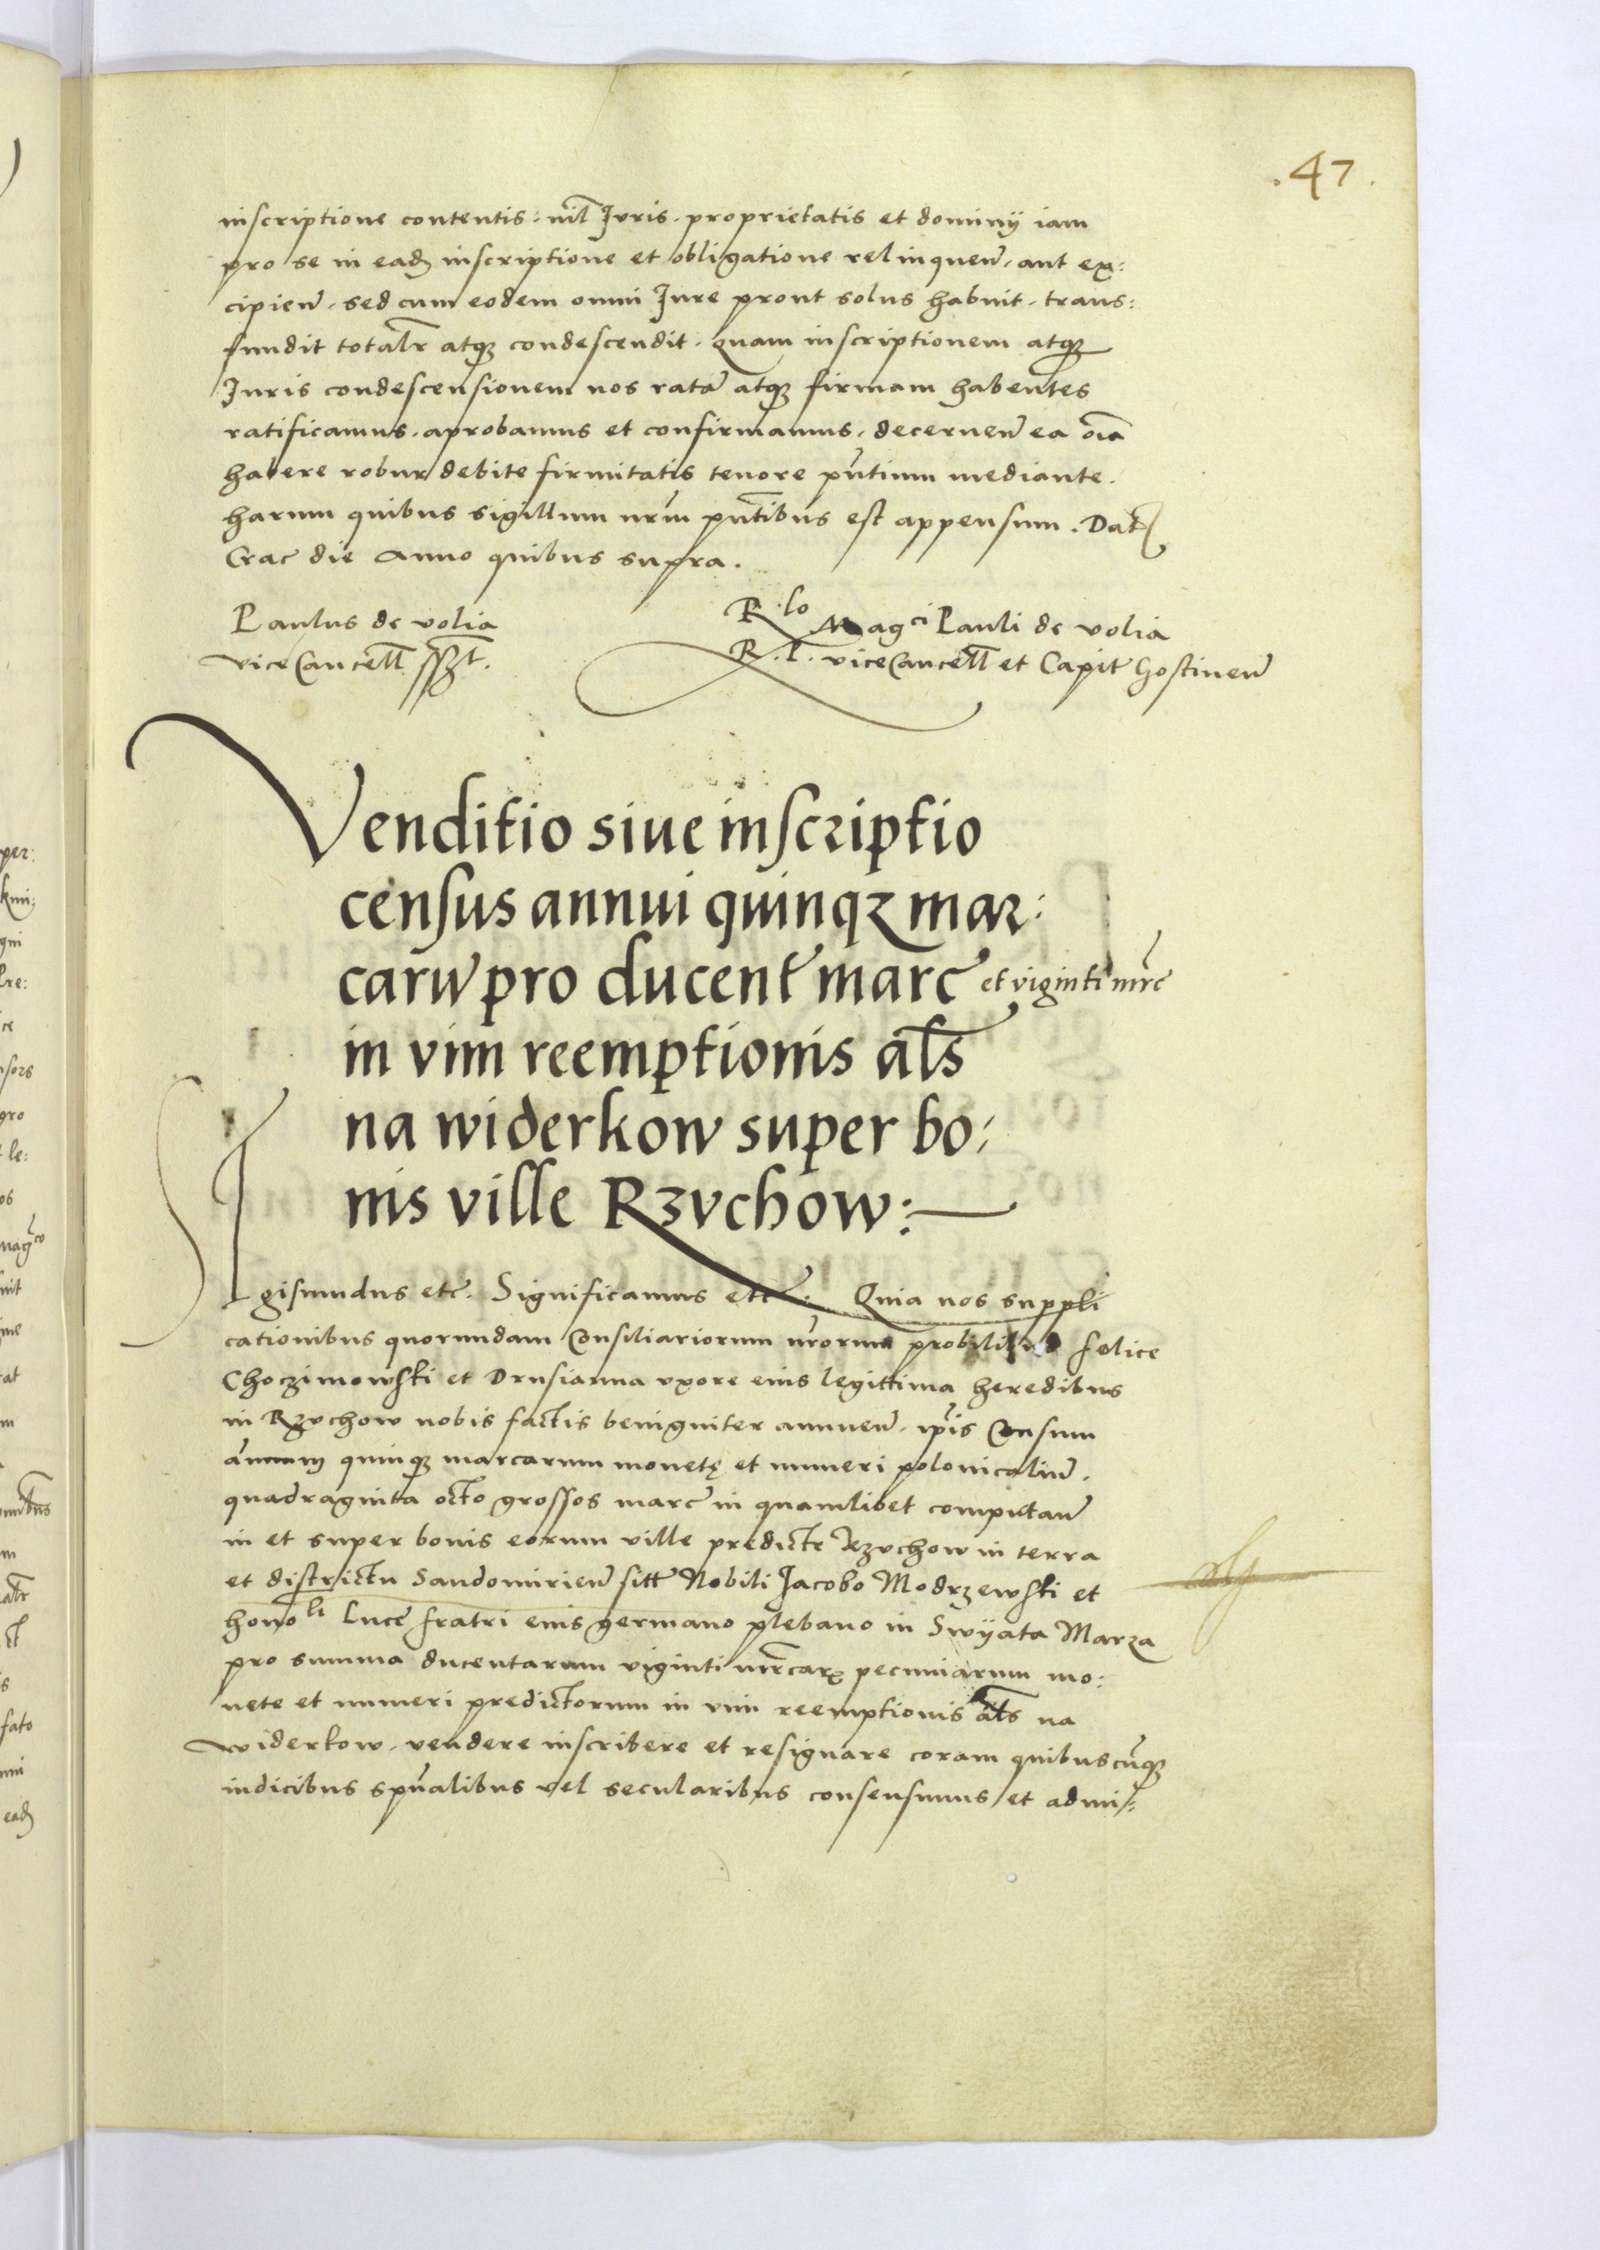 .47.
inscriptione contentis. nil Iuris. proprietatis et dominij iam
pro se in ead inscriptione et obligatione relinquen. aut ex:
cipien. sed cum eodem omni Iure prout solus habuit. trans:
fundit totalr atq condescendit. Quam inscriptionem atq
Iuris condescensionem nos rata atq firmam habentes
ratificamus. aprobamus et confirmamus. decernen ea oia
habere robur debite firmitatis tenore pntium mediante.
harum quibus sigillum nrm pntibus est appensum. Dat
Crac die Anno quibus supra.
Paulus de volia
viceCancell sszt.
R.lo Magci Pauli de volia
R.P. viceCancell et Capit Gostinen
Venditio siue inscriptio
census annui quinqz mar:
caru pro ducent marc et viginti mrc
in vim reemptionis als
na widerkow super bo:
nis ville Rzvchow:
SIgismundus etc. Significamus etc. Quia nos suppli
cationibus quorundam Consiliariorum nrorum probilibus felice
Choczimowski et Drusianna vxore eius legittima heredibus
in Rzvchow nobis factis benigniter annuen. ipis Censum
annuum quinq marcarum monetę et numeri polonicaliu.
quadraginta octo grossos marc in quamlibet computan
in et super bonis eorum ville predicte Rzvchow in terra
et districtu Sandomirien sitt Nobili Jacobo Modrzewski et
honoli Luce fratri eius germano plebano in Swyata Marza
pro summa ducentarum viginti mrcarx pecuniarum mo:
nete et numeri predictorum in vim reemptionis als na
widerkow. vendere inscribere et resignare coram quibuscunq
iudicibus spualibus vel secularibus consensimus et admi: